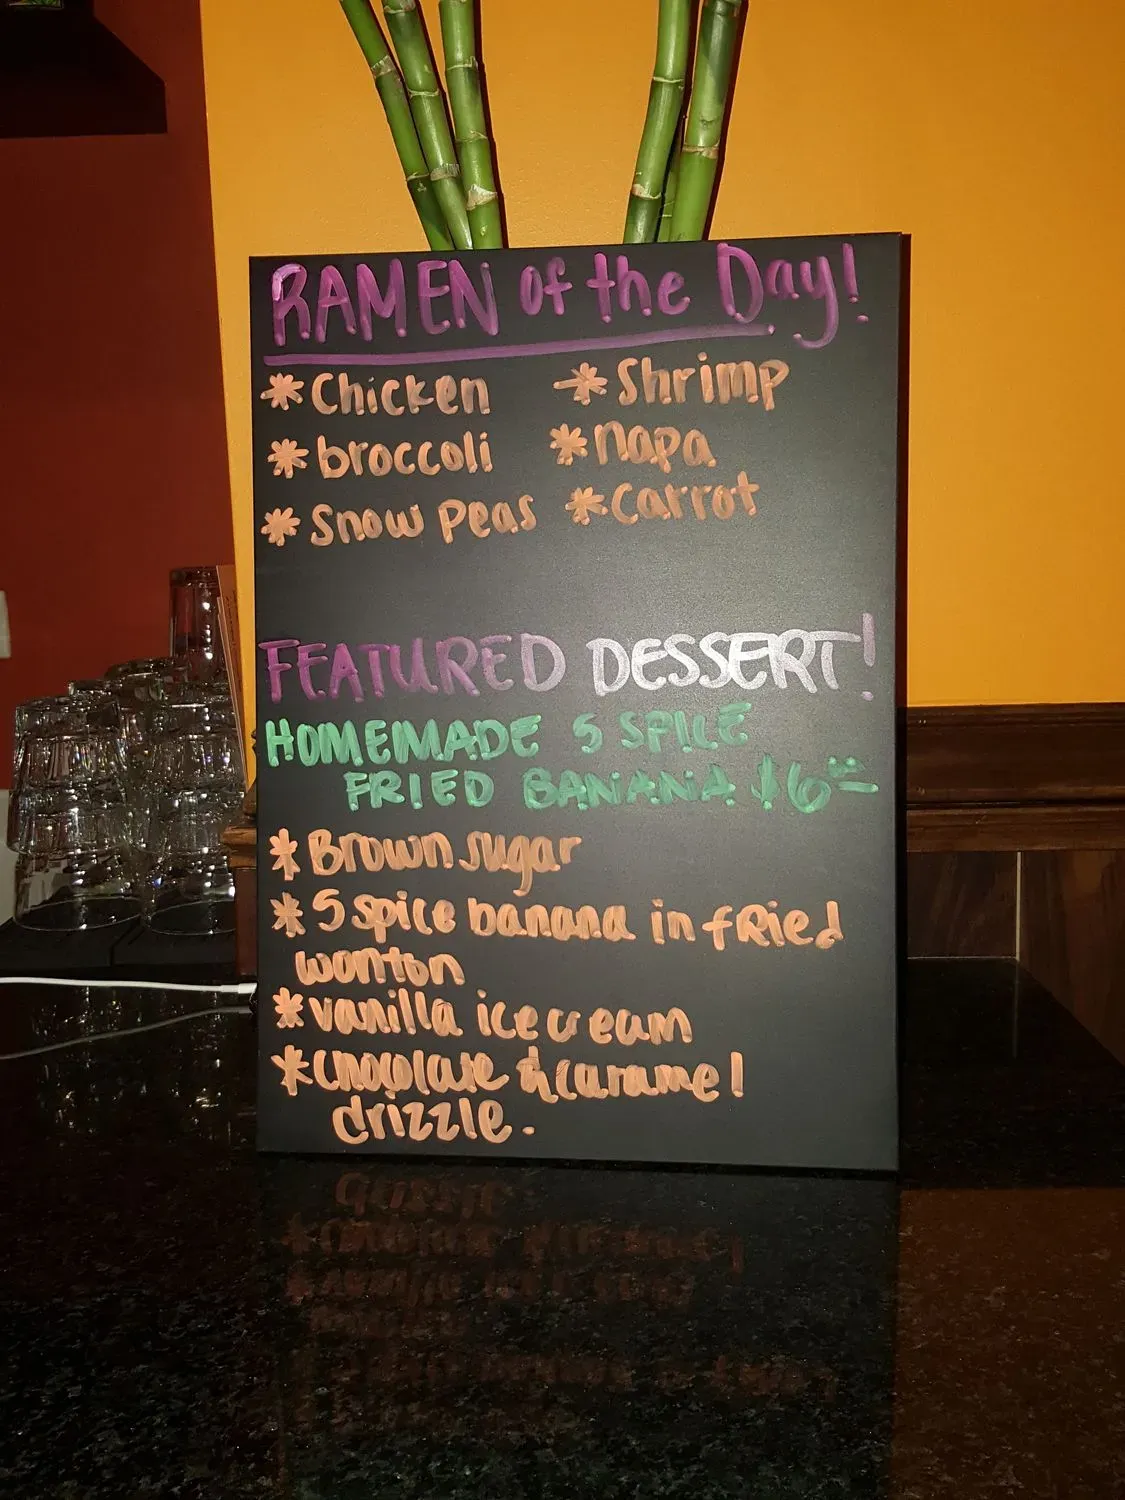 RAMEN of the Day!
* Chicken * Shrimp
* broccoli * napa
* Snow Peas * Carrot
FEATURED DESSERT!
HOMEMADE 5 SPICE
FRIED BANANA $6.00
* Brown sugar
* 5 spice banana in fRied
wonton
* vanilla ice cream
* chocolate & caramel
drizzle.